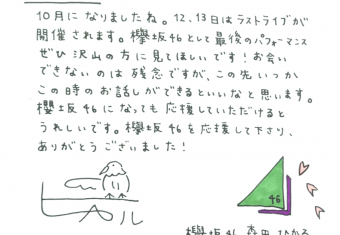 10月になりましたね。12、13日はラストライブが
開催されます。欅坂46として最後のパフォーマンス
ぜひ沢山の方に見てほしいです！お会い
できないのは残念ですが、この先いつか
この時のお話しができるといいなと思います。
櫻坂46になっても応援していただけると
うれしいです。欅坂46を応援して下さり、
ありがとうございました！
46
欅坂46 森田ひかる